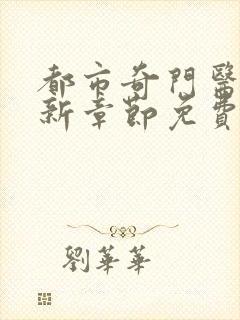 都市奇門醫
新章節免費
劉華華